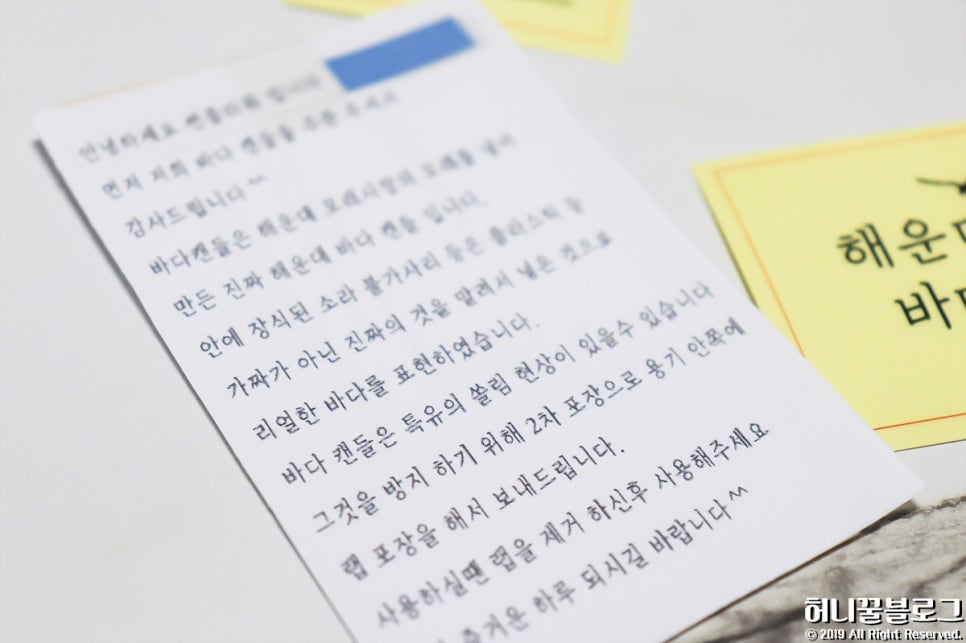 안녕하세요 캔들타워 입니다
먼저 저희 바다 캔들을 주문 주셔서
감사드립니다^^
바다캔들은 해운대 모래사장의 모래를 넣어
만든 진짜 해운대 바다 캔들 입니다.
안에 장식된 소라 불가사리 등은 플라스틱 등
가짜가 아닌 진짜의 것을 말려서 넣은 것으로
리얼한 바다를 표현하였습니다.
바다 캔들은 특유의 쏠림 현상이 있을수 있습니다
그것을 방지 하기 위해 2차 포장으로 용기 안쪽에
랩 포장을 해서 보내드립니다.
사용하실땐 랩을 제거 하신후 사용해주세요
즐거운 하루 되시길 바랍니다^^
해운
바
허니꿀블로그
© 2019 All Right Reserved.